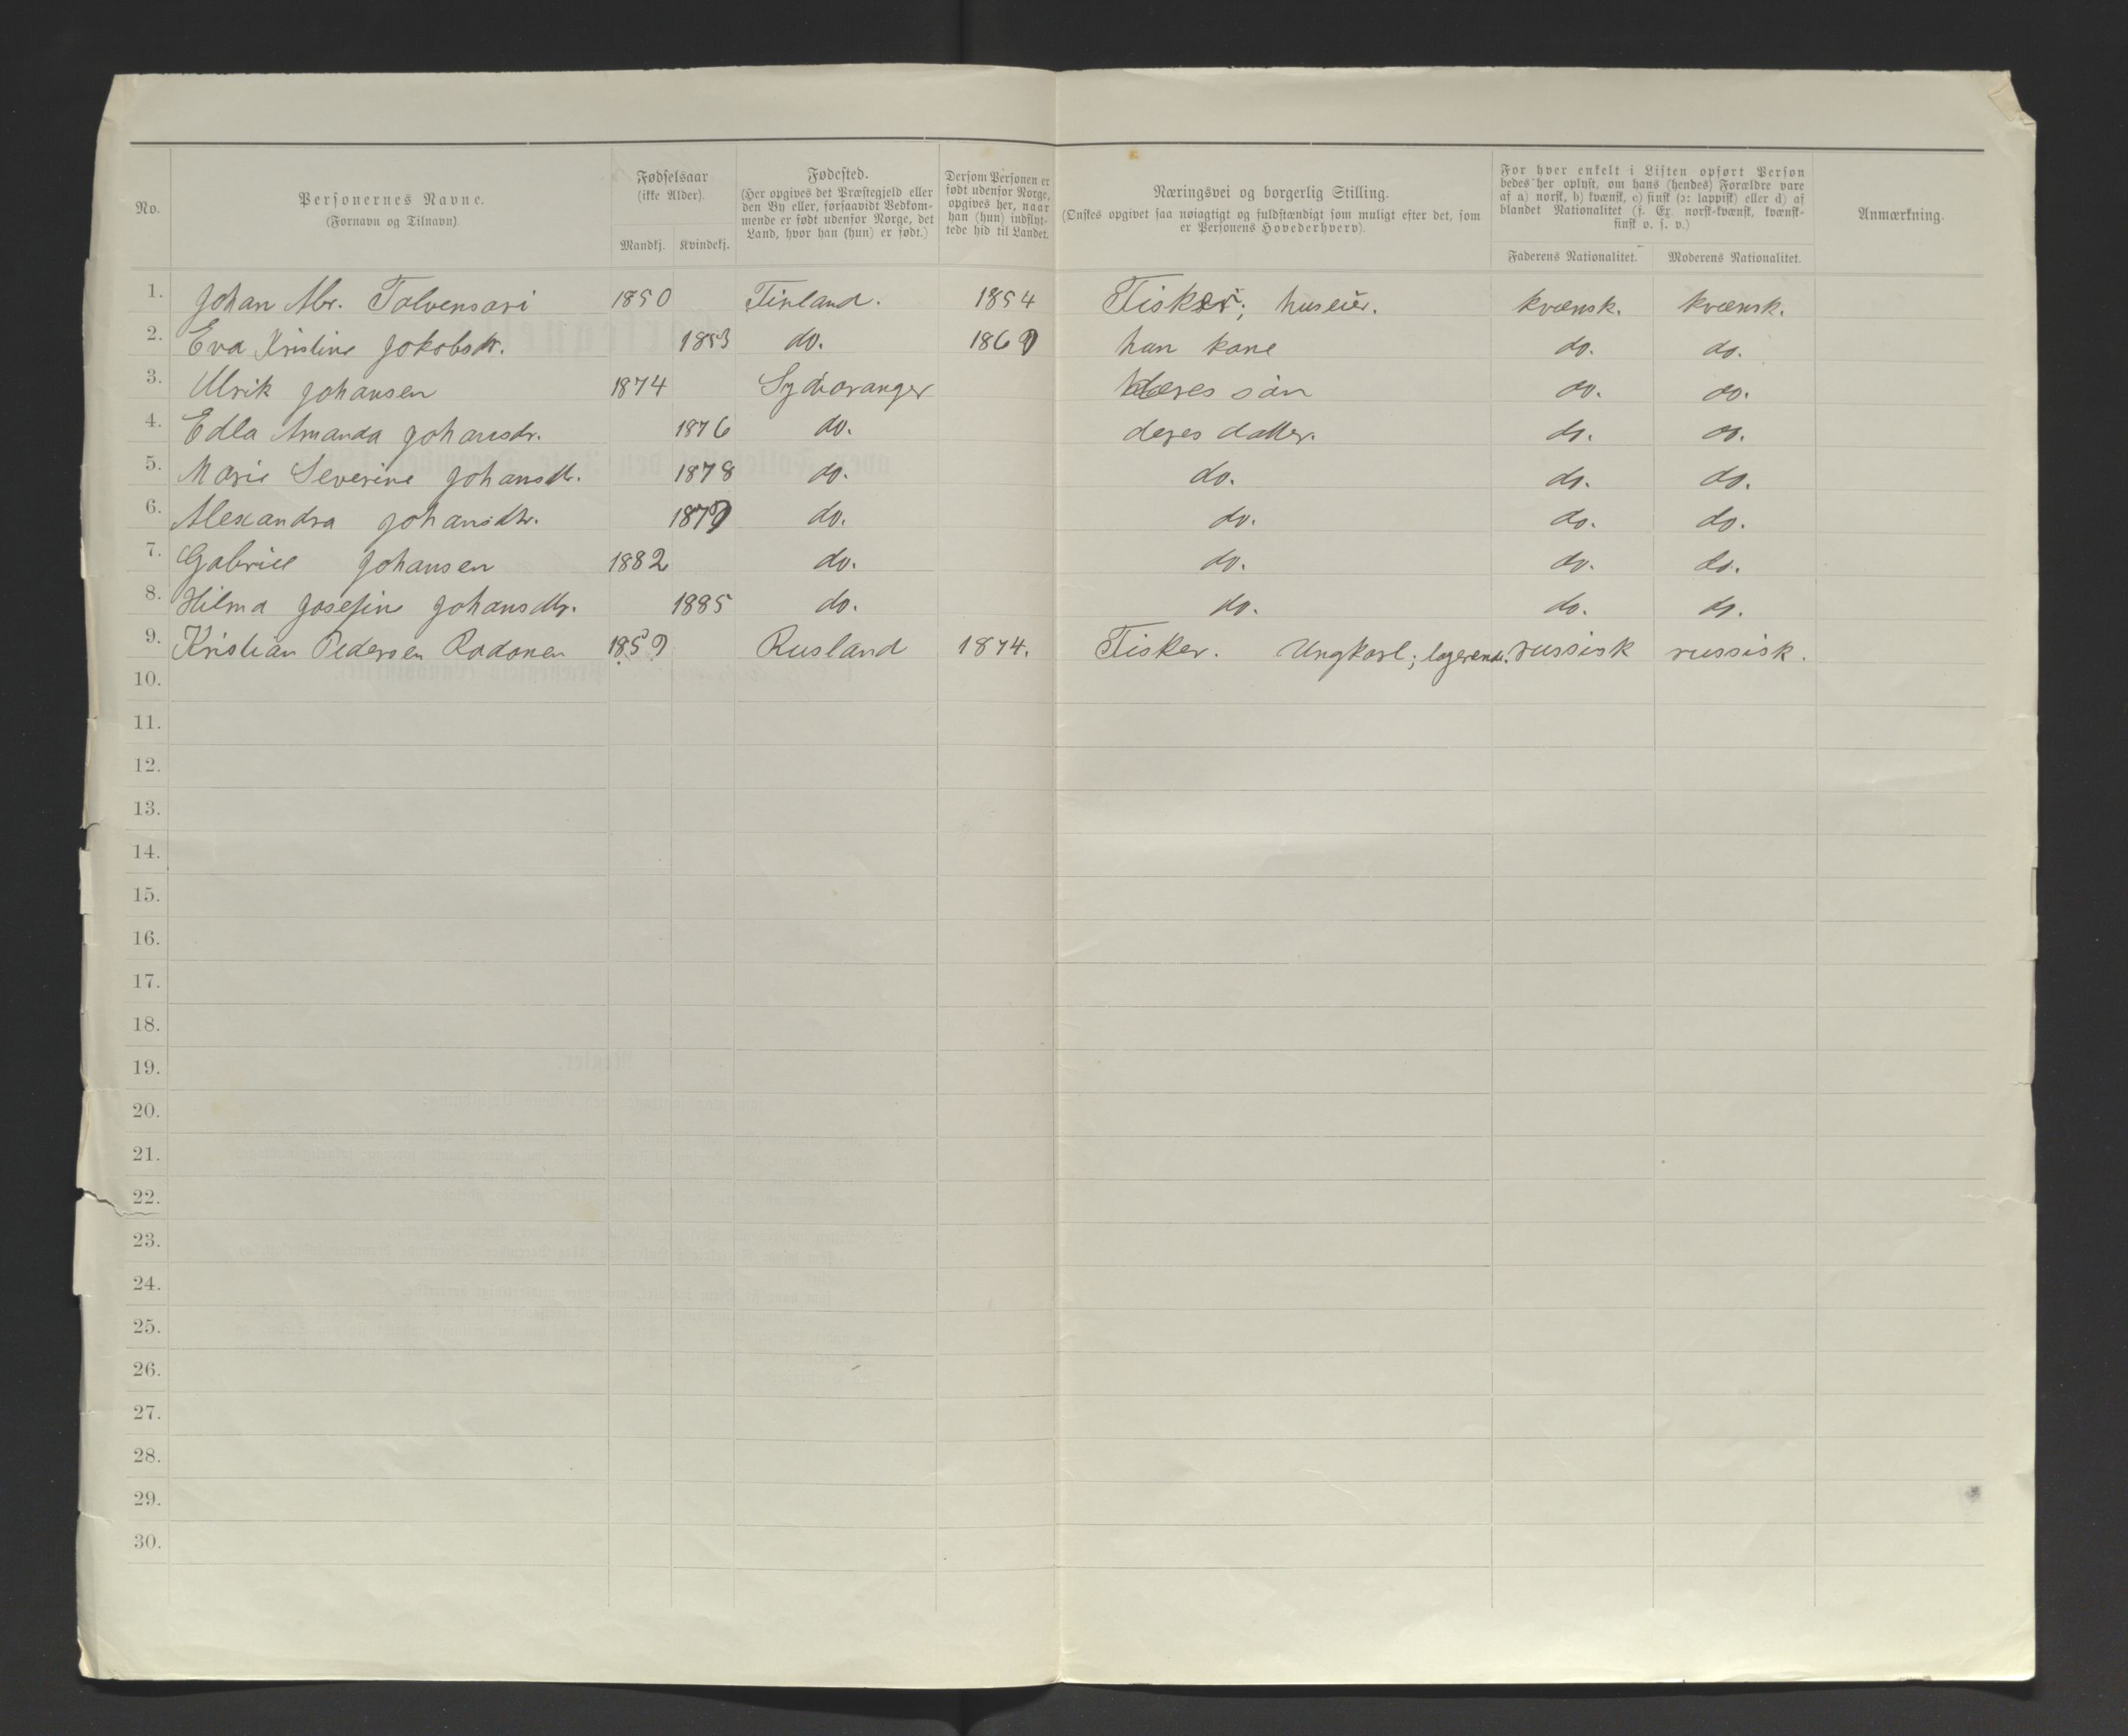 No.
Personernes Navne.
(Fornavn og Tilnavn).
Fødselsaar
(ikke Alder).
Mandkj. Kvindekj.
Fødested.
(Her opgives det Præstegjeld eller
den By eller, forsaavidt Vedkom-
mende er født udenfor Norge, det
Land, hvor han (hun) er født.)
Dersom Personen er
født udenfor Norge,
opgives her, naar
han (hun) indflyt-
tede hid til Landet.
Næringsvei og borgerlig Stilling.
(Ønskes opgivet saa nøiagtigt og fuldstændigt som muligt efter det, som
er Personens Hovederhverv).
For hver enkelt i Listen opført Person
bedes her oplyst, om hans (hendes) Forældre vare
af a) norsk, b) kvænsk, c) finsk (ɔ: lappisk) eller d) af
blandet Nationalitet (f. Ex. norsk-kvænsk, kvænsk-
finsk o. s. v.)
Faderens Nationalitet. Moderens Nationalitet.
Anmærkning.
1. Johan Abr. Tolvensari 1850 Finland. 1854 Fisker; huseier. kvænsk. kvænsk.
2. Eva Kristine Jokobsdr. 1853 do. 1869 han kone do. do.
3. Ulrik Johansen 1874 Sydvaranger deres søn do. do.
4. Edla Amanda Johansdr. 1876 do. deres datter. do. do.
5. Marie Severine Johansdtr. 1878 do. do. do. do.
6. Alexandra Johansdtr. 1879 do. do. do. do.
7. Gabriel Johansen 1882 do. do. do. do.
8. Hilma Josefine Johansdtr. 1885 do. do. do. do.
9. Kristian Pedersen Rodonen 1859 Rusland 1874. Fisker. Ungkarl; logerende. russisk russisk.
10.
11.
12.
13.
14.
15.
16.
17.
18.
19.
20.
21.
22.
23.
24.
25.
26.
27.
28.
29.
30.